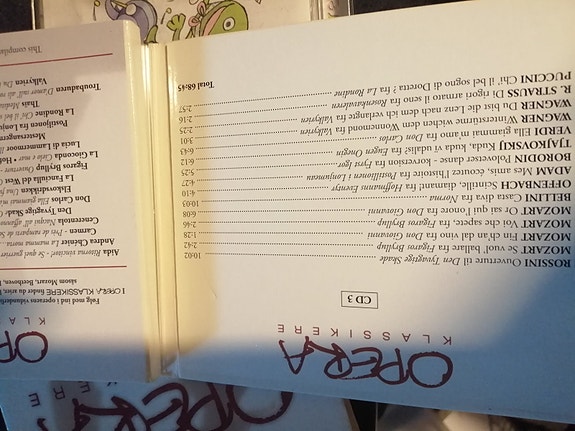 OPERA
KLASSIKERE
CD 3
ROSSINI Ouverture til Den Tyvagtige Skade 10:02
MOZART Se vuol' ballare fra Figaros Bryllup 2:42
MOZART Fin ch'an dal vino fra Don Giovanni 1:28
MOZART Voi che sapete, fra Figaros Bryllup 2:46
MOZART Or sai qui l'onore fra Don Giovanni 6:08
BELLINI Casta diva fra Norma 10:03
OFFENBACH Scintille, diamant fra Hoffmanns Eventyr 4:10
ADAM Mes amis, écoutez l'histoire fra Postillonen i Lonjumeau 4:27
BORODIN Polovetser danse - korversion fra Fyrst Igor 5:25
TJAJKOVSKIJ Kuda, kuda, vi udalis fra Eugen Onegin 6:12
VERDI Ella giammai m'amo fra Don Carlos 6:43
WAGNER Winterstürme wichen dem Wonnemond fra Valkyrien 3:01
WAGNER Du bist die Lenz nach dem ich verlangte fra Valkyrien 2:25
R. STRAUSS Di rigori armato il seno fra Rosenkavaleren 2:16
PUCCINI Chi'l bel sogno di Doretta ? fra La Rondine 2:57
Total 68:45
OPERA
KLA
I OPERA KLASSIKERE finder du arier
Følg med ind i operaens vidunderli
Aida
Andrea Chénier La mamma morta
Carmen
Cenerentola
Den Tyvagtige Skade
Don Carlos Ella giammai
Elskovsdrikken Una
La Fanciulla del West
Figaros Bryllup
La Gioconda Cielo e mar
Lucia di Lammermoor
Mestersangerne
Postiljonen fra Lonjumeau
La Rondine Chi'l bel
Thaïs
Troubaduren
Valkyrien Du
This compilat
OPERA
KERE